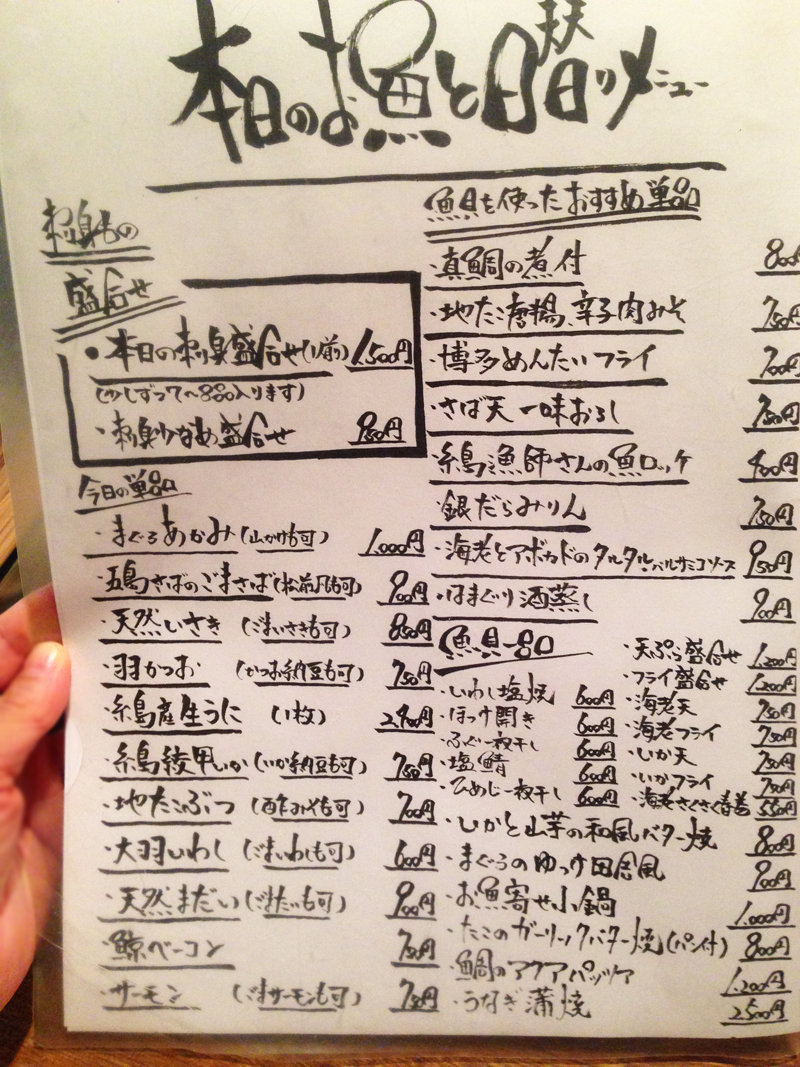 本日のお魚と日替りメニュー
刺身もの
盛合せ
・本日の刺身盛合せ(1人前) 1,500円
(少しずつ7〜8品入ります)
・刺身少なめ盛合せ 950円
今日の単品
・まぐろあかみ(山かけも可) 1,000円
・五島さばのごまさば(松前風も可) 900円
・天然いさき (ごまいさきも可) 850円
・羽かつお (かつお納豆も可) 750円
・糸島産生うに (1枚) 2,400円
・糸島綾甲いか(いか納豆も可) 750円
・地たこぶつ (酢みそも可) 700円
・大羽いわし (ごまいわしも可) 600円
・天然まだい(ごまたいも可) 900円
・鯨ベーコン 750円
・サーモン (ごまサーモンも可) 750円
魚貝を使ったおすすめ単品
・真鯛の煮付 800円
・地たこ唐揚、辛子肉みそ 750円
・博多めんたいフライ 700円
・さば天 一味おろし 750円
・糸島漁師さんの魚ロッケ 400円
・銀だらみりん 750円
・海老とアボカドのタルタル バルサミコソース 950円
・はまぐり酒蒸し 900円
魚貝一品
・いわし塩焼 600円
・ほっけ開き 600円
・ふぐ一枚干し 600円
・塩鯖 600円
・ひめじ一枚干し 600円
・天ぷら盛合せ 1,200円
・フライ盛合せ 1,200円
・海老天 750円
・海老フライ 750円
・いか天 750円
・いかフライ 750円
・海老さくさく春巻 550円
・いかと山芋の和風バター焼 800円
・まぐろのゆっけ田舎風 900円
・お魚寄せ小鍋 1,000円
・たこのガーリックバター焼(パン付) 800円
・鯛のアクアパッツァ 1,200円
・うなぎ蒲焼 2,500円